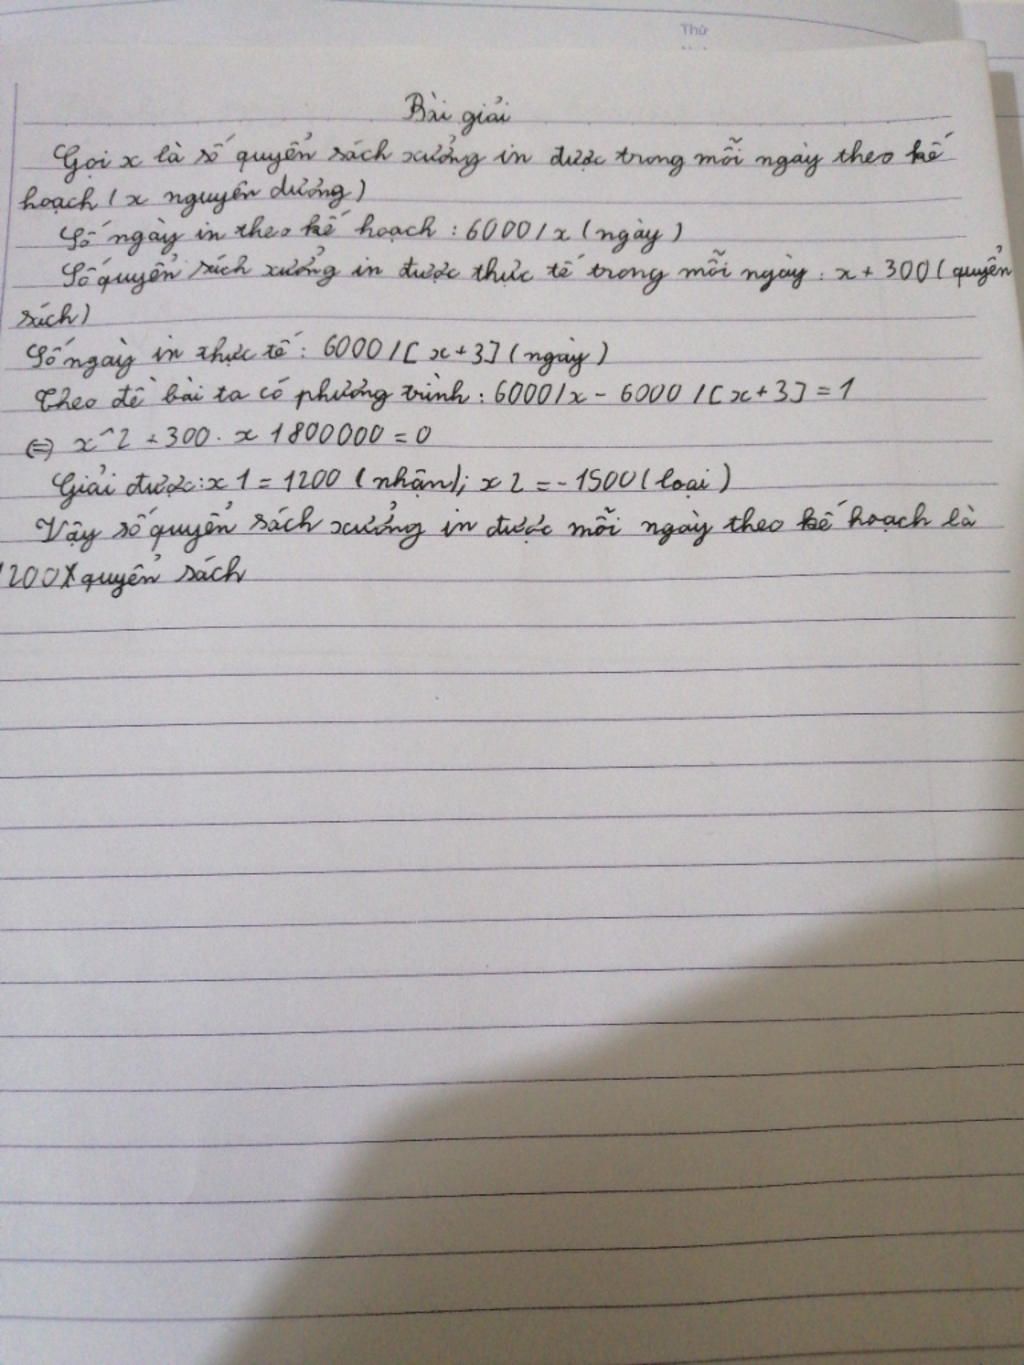 Thứ
Bài giải
Gọi x là số quyển sách xưởng in được trong mỗi ngày theo kế
hoạch (x nguyên dương)
Số ngày in theo kế hoạch : 6000/x (ngày)
Số quyển sách xưởng in được thực tế trong mỗi ngày : x + 300 (quyển
sách)
Số ngày in thực tế : 6000/[x+3] (ngày)
Theo đề bài ta có phương trình : 6000/x - 6000/[x+3] = 1
⇔ x^2 + 300. x 1800000 = 0
Giải được: x1 = 1200 (nhận); x2 = -1500 (loại)
Vậy số quyển sách xưởng in được mỗi ngày theo kế hoạch là
1200 quyển sách